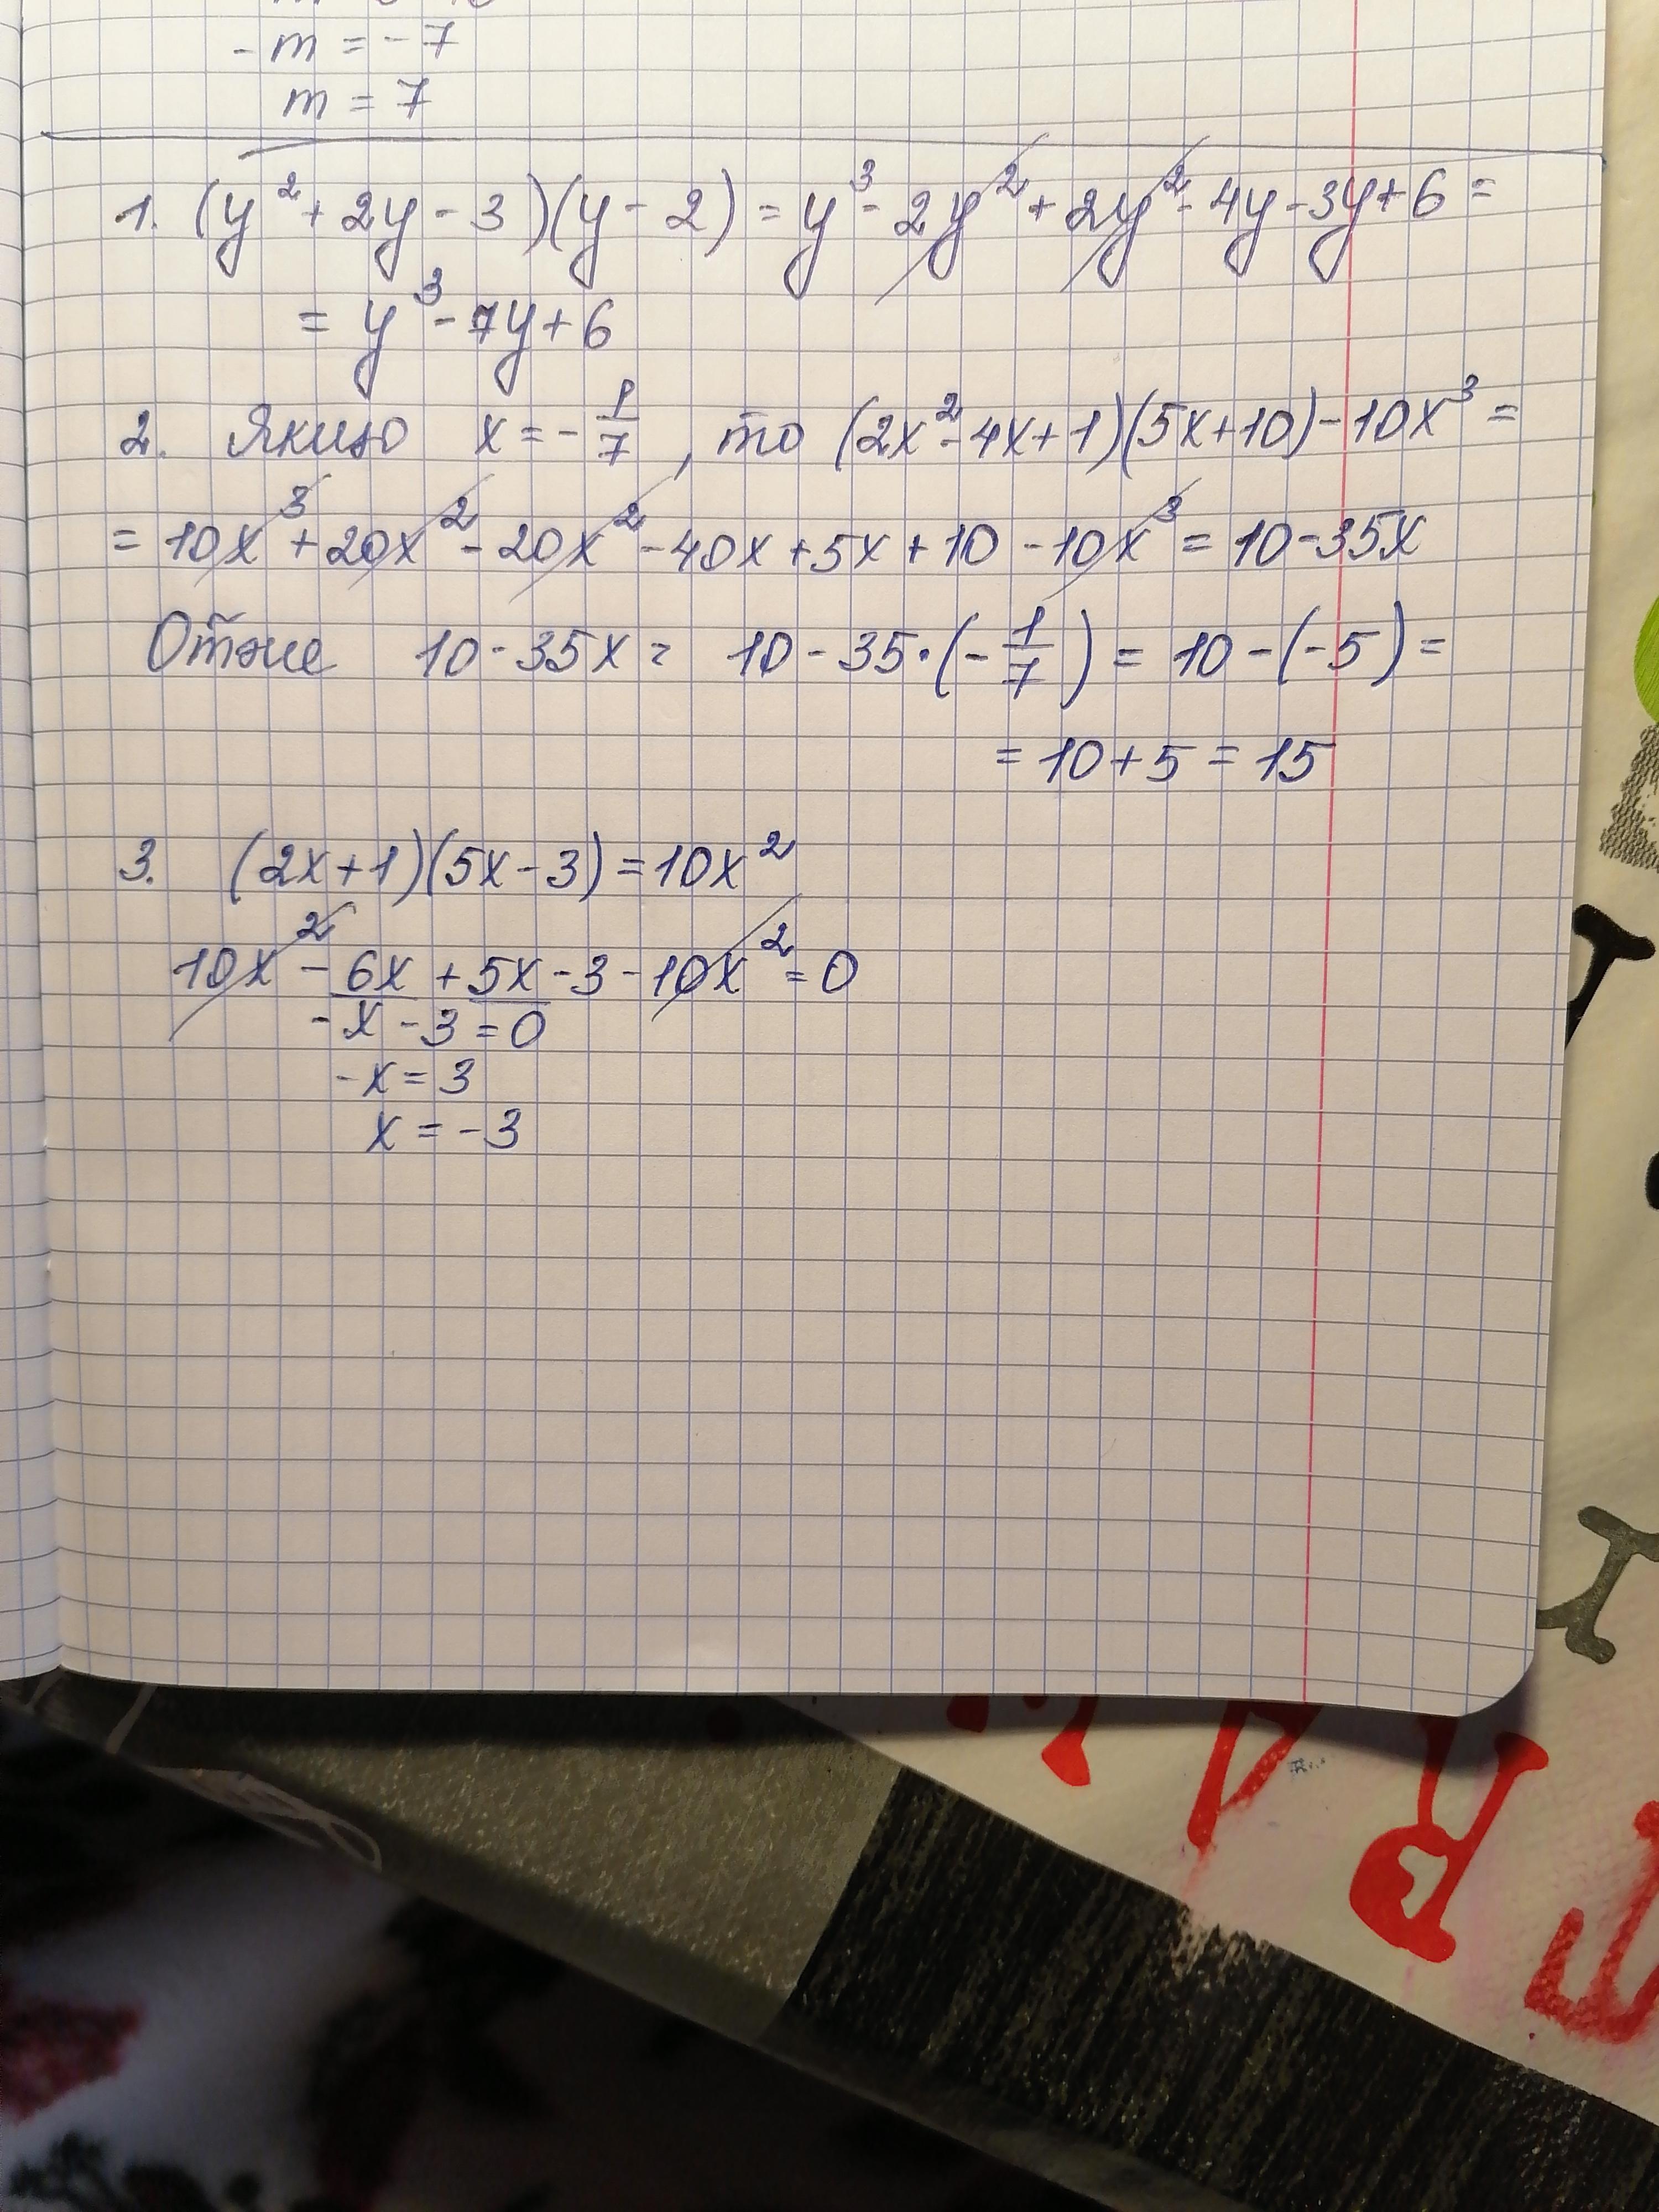 -m = -7
m = 7
1. (y² + 2y - 3)(y - 2) = y³ - 2y² + 2y² - 4y - 3y + 6 =
= y³ - 7y + 6
2. Якщо x = -1/7, то (2x² - 4x + 1)(5x + 10) - 10x³ =
= 10x³ + 20x² - 20x² - 40x + 5x + 10 - 10x³ = 10 - 35x
Отже 10 - 35x = 10 - 35·(-1/7) = 10 - (-5) =
= 10 + 5 = 15
3. (2x + 1)(5x - 3) = 10x²
10x² - 6x + 5x - 3 - 10x² = 0
-x - 3 = 0
-x = 3
x = -3